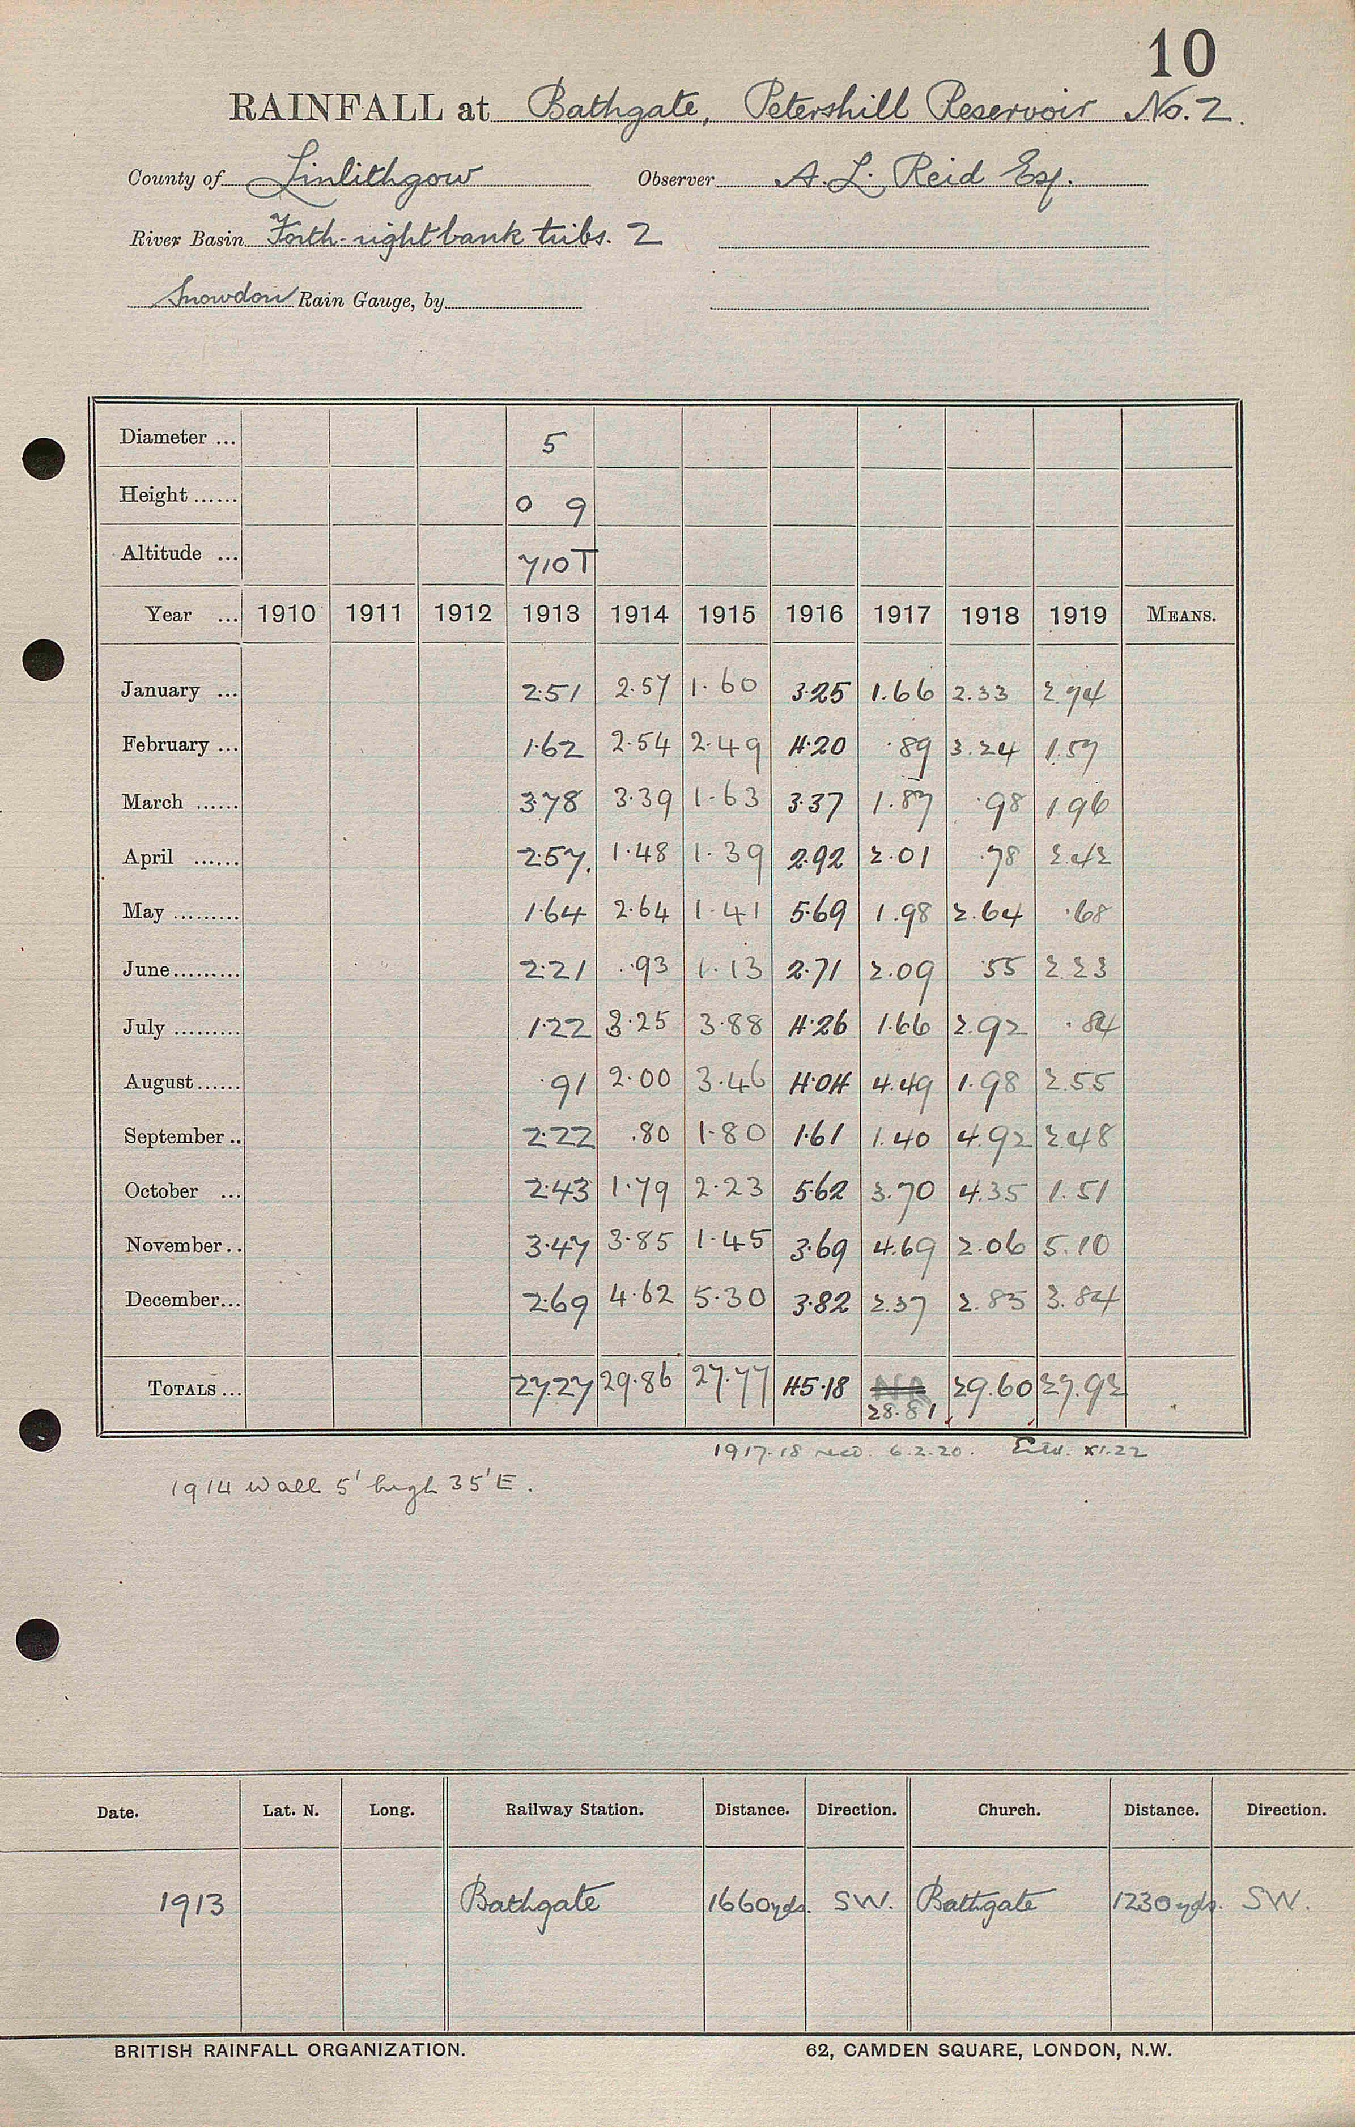 10
RAINFALL at Bathgate, Petershill Reservoir No. 2.
County of Linlithgow Observer A. L. Reid Esq.
River Basin Forth - right bank tribs. 2
Snowdon Rain Gauge, by
Diameter ... 5
Height ...... 0 9
Altitude ... 710T
Year ... 1910 1911 1912 1913 1914 1915 1916 1917 1918 1919 MEANS.
January ... 2.51 2.57 1.60 3.25 1.66 2.33 2.74
February ... 1.62 2.54 2.49 4.20 .89 3.24 1.57
March ...... 3.78 3.39 1.63 3.37 1.87 .98 1 96
April ...... 2.57. 1.48 1.39 2.92 2.01 .78 2.42
May ......... 1.64 2.64 1.41 5.69 1.98 2.64 .68
June ......... 2.21 .93 1.13 2.71 2.09 55 2 23
July ......... 1.22 3.25 3.88 4.26 1.66 2.92 .84
August ...... .91 2.00 3.46 4.04 4.49 1.98 2.55
September .. 2.22 .80 1.80 1.61 1.40 4.92 2.48
October ... 2.43 1.79 2.23 5.62 3.70 4.35 1.51
November .. 3.47 3.85 1.45 3.69 4.69 2.06 5.10
December ... 2.69 4.62 5.30 3.82 2.37 2.85 3.84
TOTALS ... 27.27 29.86 27.77 45.18 NR 29.60 27.92
28.81
1917-18 recd. 6.2.20. Etd. XI.22
1914 Wall 5' high 35' E.
Date. Lat. N. Long. Railway Station. Distance. Direction. Church. Distance. Direction.
1913 Bathgate 1660 yds. SW. Bathgate 1230 yds. SW.
BRITISH RAINFALL ORGANIZATION. 62, CAMDEN SQUARE, LONDON, N.W.